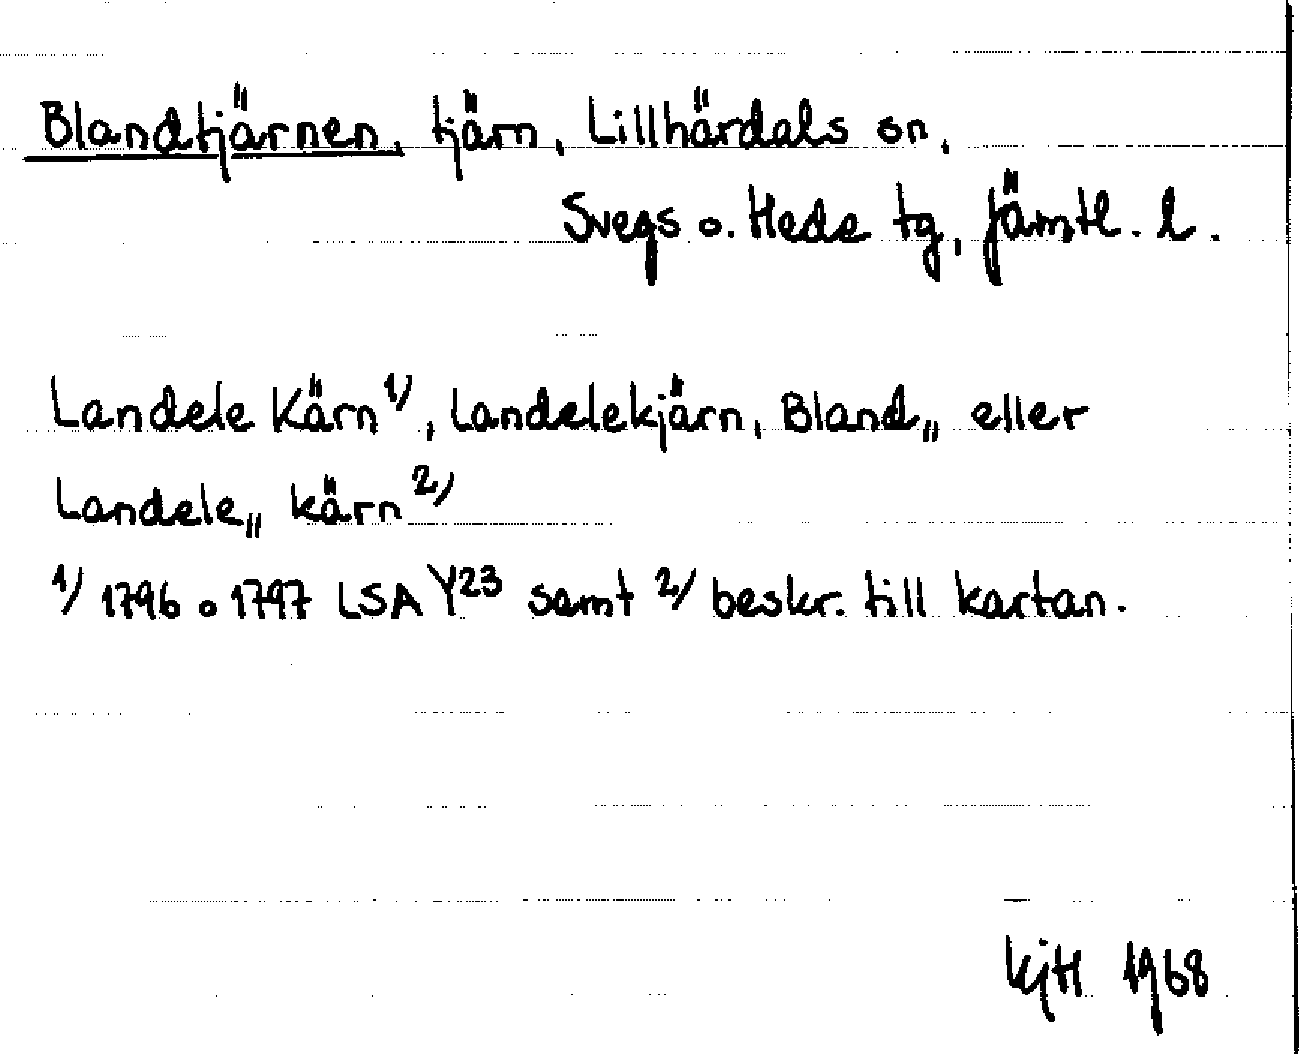 Blandtjärnen, tjärn, Lillhärdals sn,
Svegs o. Hede tg, Jämtl. l.
Landele Kärn 1), Landelekjärn, Bland„ eller
Landele„ kärn 2)
1) 1796 o 1797 LSA Y23 samt 2) beskr. till kartan.
KjH 1968